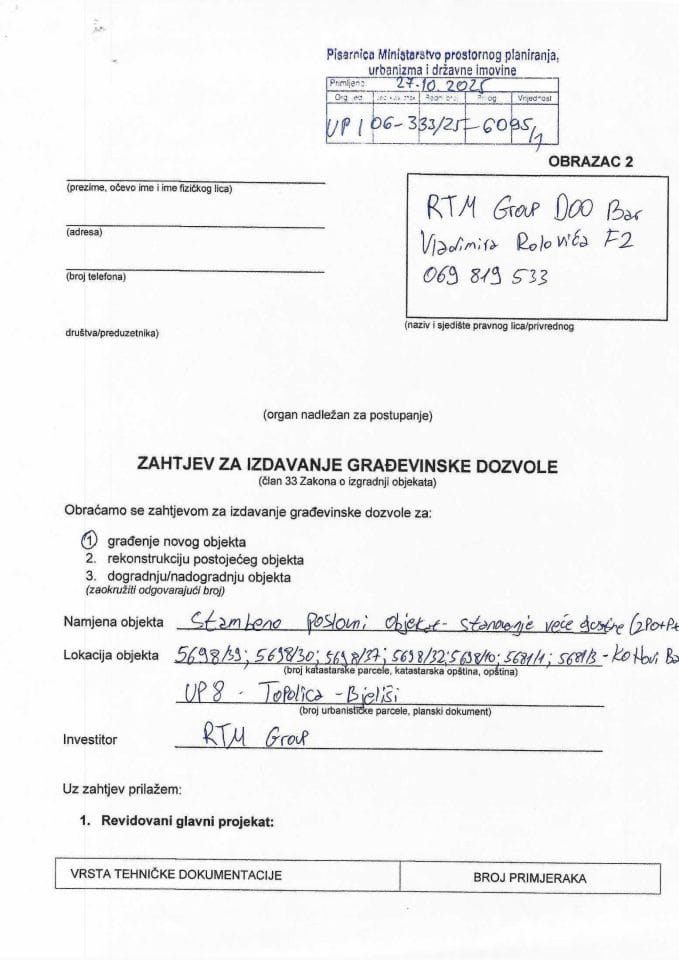 Pisarnica Ministarstvo prostornog planiranja,
urbanizma i državne imovine
Primljeno: 27.10.2025
Org. jed. Prilog Vrijednost
UPI 06-333/25-6095/1
OBRAZAC 2
(prezime, očevo ime i ime fizičkog lica)
(adresa)
(broj telefona)
društva/preduzetnika)
RTM Group DOO Bar
Vladimira Rolovića F2
069 819 533
(naziv i sjedište pravnog lica/privrednog
(organ nadležan za postupanje)
ZAHTJEV ZA IZDAVANJE GRAĐEVINSKE DOZVOLE
(član 33 Zakona o izgradnji objekata)
Obraćamo se zahtjevom za izdavanje građevinske dozvole za:
1 građenje novog objekta
2. rekonstrukciju postojećeg objekta
3. dogradnju/nadogradnju objekta
(zaokružiti odgovarajući broj)
Namjena objekta Stambeno poslovni objekat - stanovanje veće gustine (2Po+P+
Lokacija objekta 5698/39; 5698/30; 5698/37; 5698/32; 5698/10; 5681/1; 5681/3 - KO Novi Ba
(broj katastarske parcele, katastarska opština, opština)
UP 8 - Topolica - Bjeliši
(broj urbanističke parcele, planski dokument)
Investitor RTM Group
Uz zahtjev prilažem:
1. Revidovani glavni projekat:
VRSTA TEHNIČKE DOKUMENTACIJE BROJ PRIMJERAKA